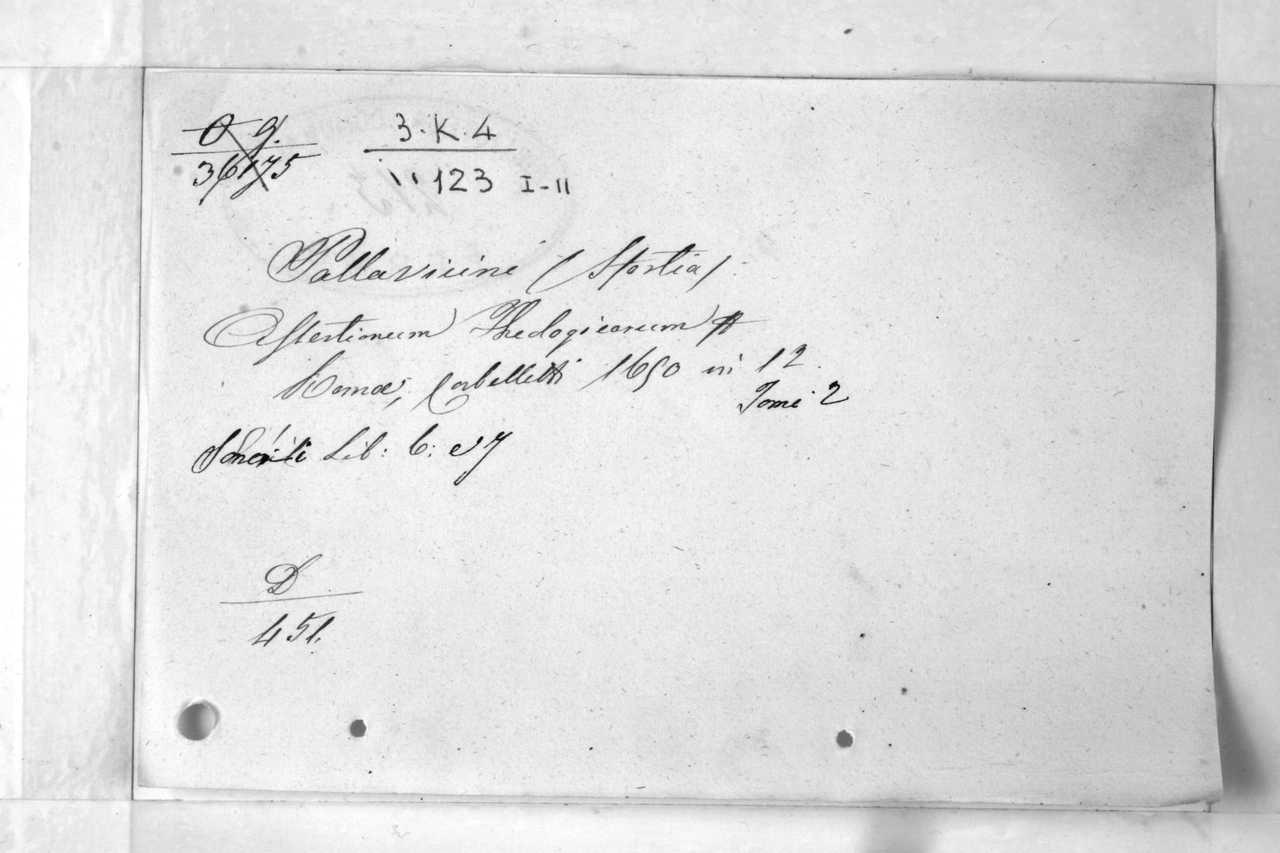 O g.
36175
3. K. 4
" 123 I-II
Pallavicini (Sfortia)
Assertionum Theologicarum
Romæ, Corbelletti 1650 in 12.
Tomi 2
Lib: 6: e 7
D
451.